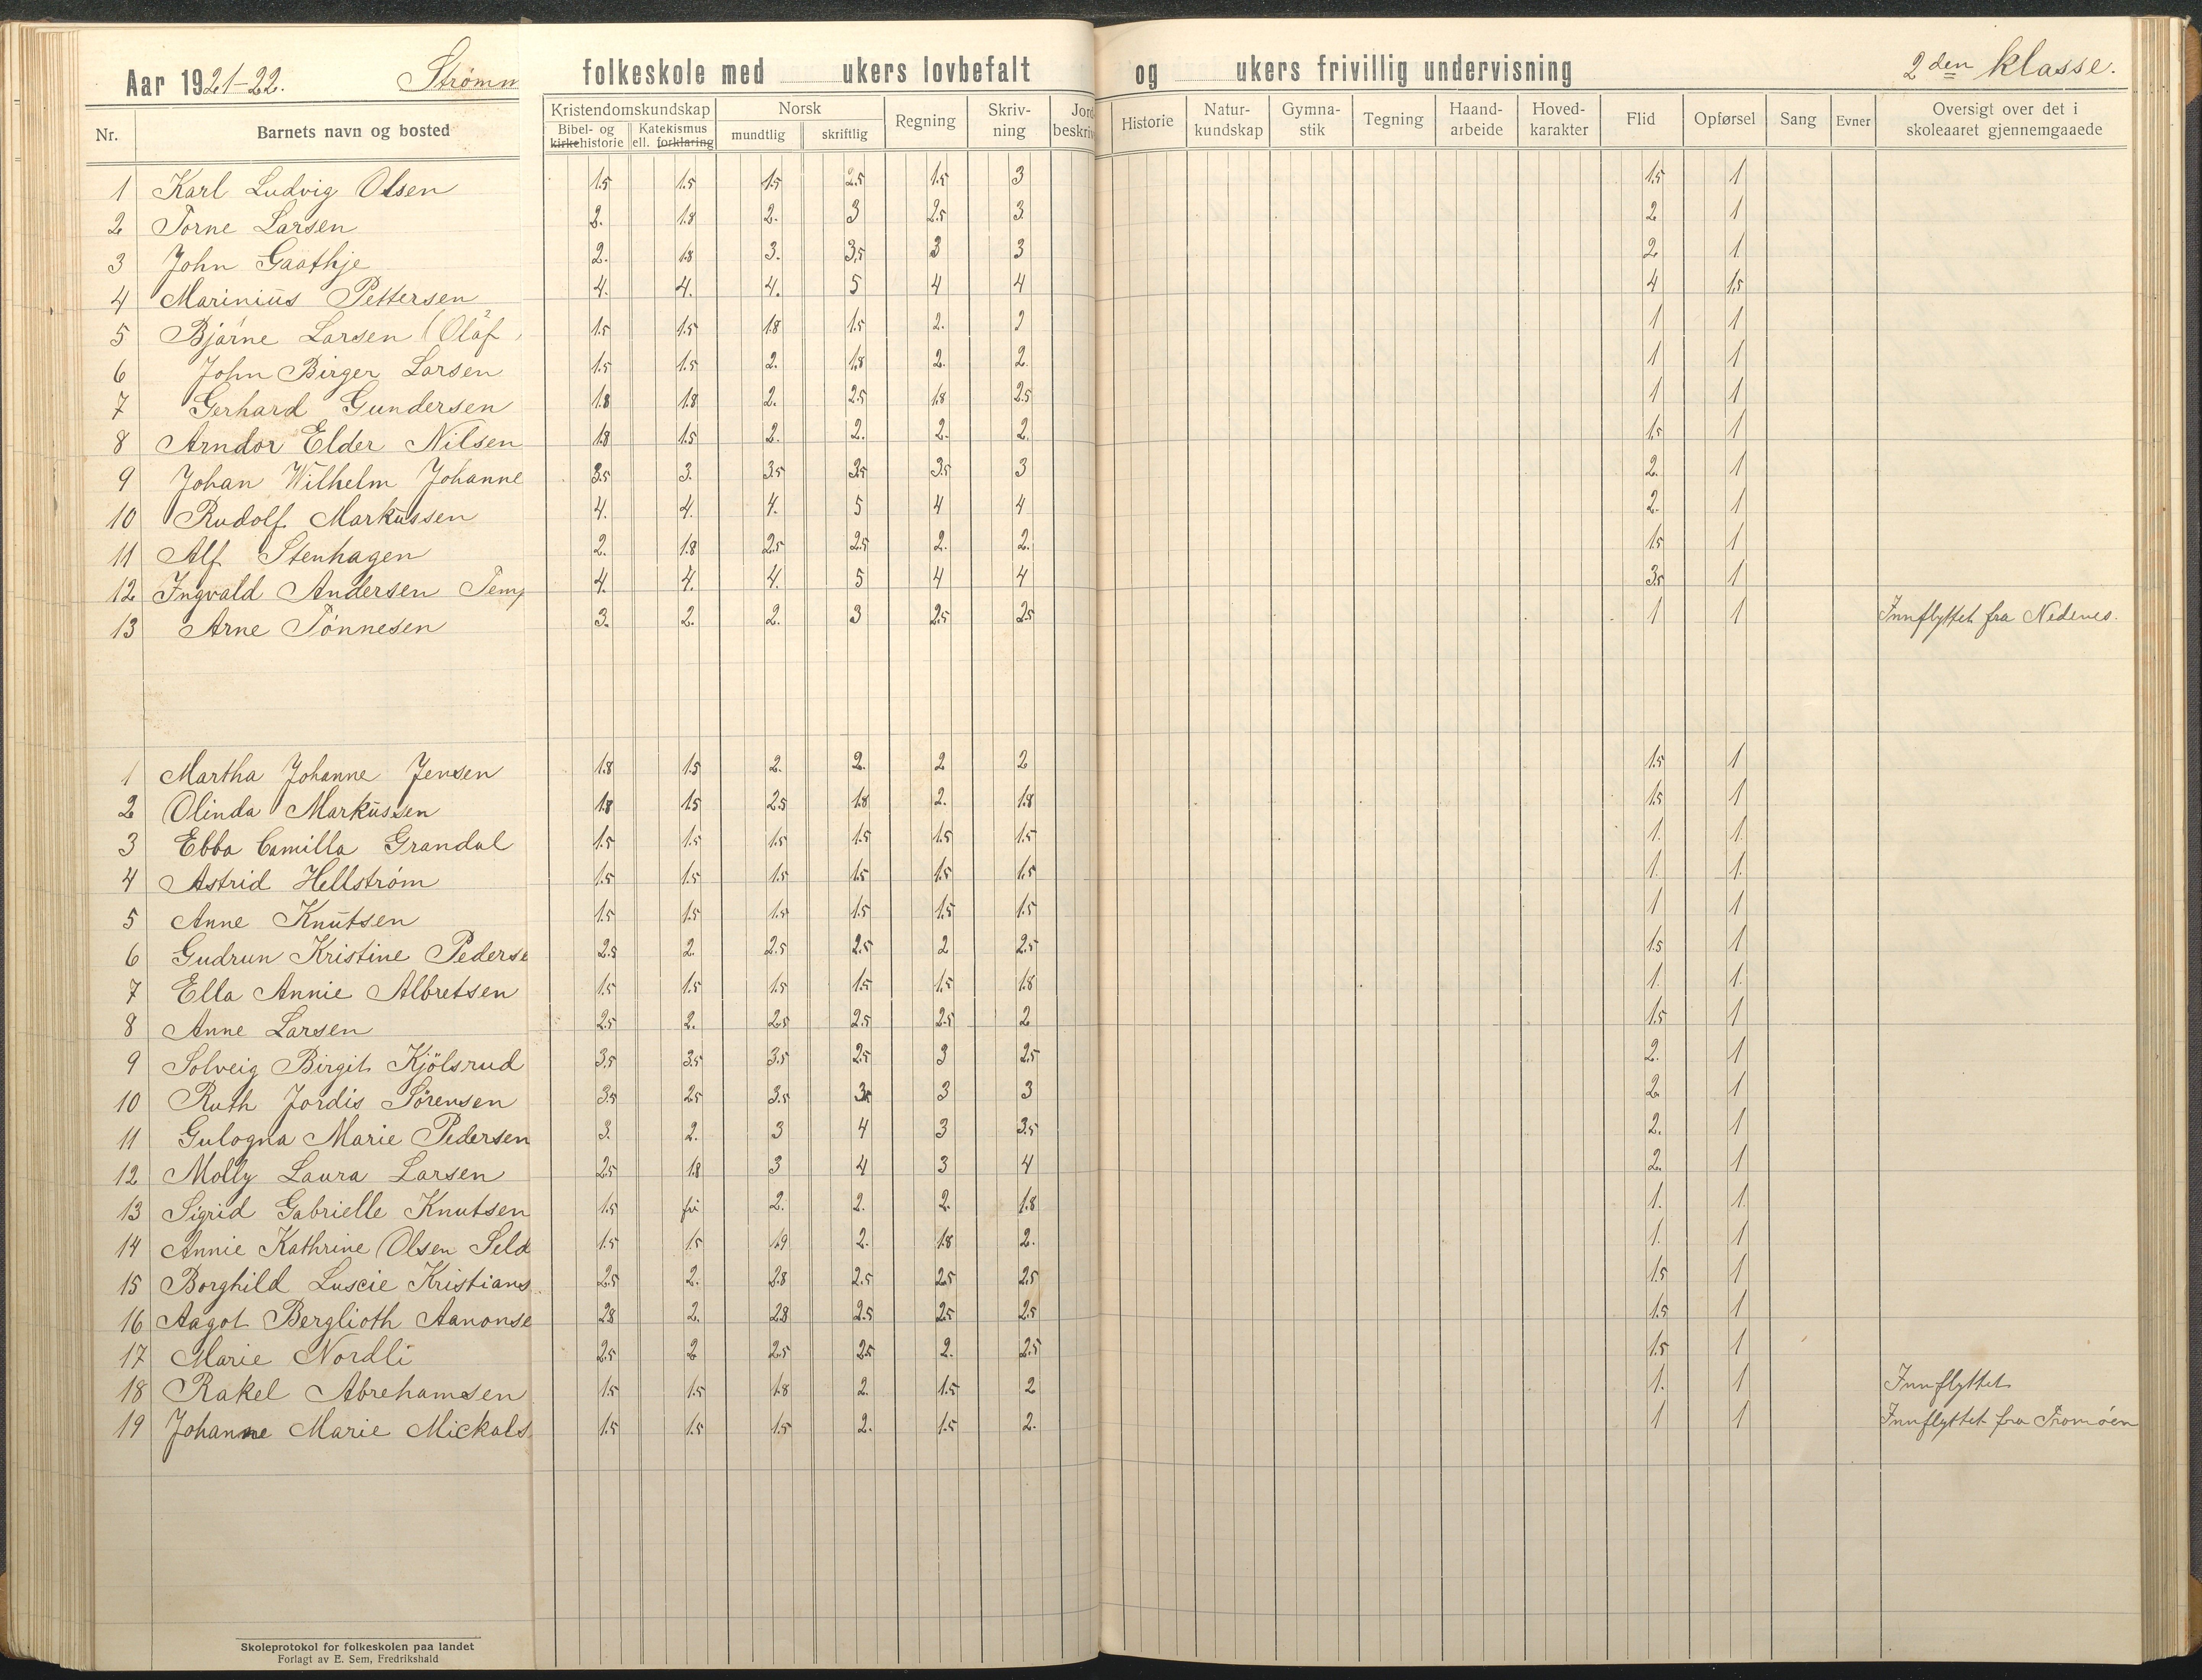 Aar 1921-22. Strømm folkeskole med ukers lovbefalt og ukers frivillig undervisning 2den klasse.
Nr. Barnets navn og bosted Kristendomskundskap Norsk Regning Skriv-ning Jord beskriv Historie Natur-kundskap Gymna-stik Tegning Haand-arbeide Hoved-karakter Flid Opførsel Sang Evner Oversigt over det i skoleaaret gjennemgaaede
Bibel- og kirkehistorie Katekismus ell. forklaring mundtlig skriftlig
1 Karl Ludvig Olsen 1.5 1.5 1.5 2.5 1.5 3 1.5 1
2 Torne Larsen 2. 1.8 2. 3 2.5 3 2 1
3 John Gaathje 2. 1.8 3. 3.5 3 3 2 1
4 Marinius Pettersen 4. 4. 4. 5 4 4 4 1.5
5 Bjarne Larsen (Olaf 1.5 1.5 1.8 1.5 2. 2 1 1
6 John Birger Larsen 1.5 1.5 2. 1.8 2. 2. 1 1
7 Gerhard Gundersen 1.8 1.8 2. 2.5 1.8 2.5 1 1
8 Arndor Elder Nilsen 1.8 1.5 2. 2. 2. 2. 1.5 1
9 Johan Wilhelm Johanne 3.5 3. 3.5 3.5 3.5 3 2. 1
10 Rudolf Markussen 4. 4. 4. 5 4 4 2. 1
11 Alf Stenhagen 2. 1.8 2.5 2.5 2. 2. 1.5 1
12 Ingvald Andersen Temp 4. 4. 4. 5 4 4 3.5 1
13 Arne Tönnesen 3. 2. 2. 3 2.5 2.5 1 1 Innflyttet fra Nedenes.
1 Martha Johanne Jensen 1.8 1.5 2. 2. 2 2 1.5 1
2 Olinda Markussen 1.8 1.5 2.5 1.8 2. 1.8 1.5 1
3 Ebba Camilla Grandal 1.5 1.5 1.5 1.5 1.5 1.5 1. 1.
4 Astrid Hellström 1.5 1.5 1.5 1.5 1.5 1.5 1. 1.
5 Anne Knutsen 1.5 1.5 1.5 1.5 1.5 1.5 1 1
6 Gudrun Kristine Pederse 2.5 2. 2.5 2.5 2 2.5 1.5 1
7 Ella Annie Albretsen 1.5 1.5 1.5 1.5 1.5 1.8 1. 1.
8 Anne Larsen 2.5 2. 2.5 2.5 2.5 2 1.5 1
9 Solveig Birgit Kjölsrud 3.5 3.5 3.5 2.5 3 2.5 2. 1
10 Ruth Jordis Sörensen 3.5 2.5 3.5 3 3 2. 1
11 Gulogna Marie Pedersen 3. 2. 3 4 3 3.5 2. 1
12 Molly Laura Larsen 2.5 1.8 3 4 3 4 2. 1
13 Sigrid Gabrielle Knutsen 1.5 fri 2. 2. 2. 1.8 1. 1
14 Annie Kathrine Olsen Seld 1.5 1.5 1.9 2. 1.8 2. 1. 1
15 Borghild Luscie Kristians 2.5 2. 2.8 2.5 2.5 2.5 1.5 1
16 Aagot Berglioth Aanonse 2.8 2. 2.8 2.5 2.5 2.5 1.5 1
17 Marie Nordli 2.5 2 2.5 2.5 2. 2.5 1.5 1
18 Rakel Abrehamsen 1.5 1.5 1.8 2. 1.5 2 1. 1 Innflyttet
19 Johanne Marie Mickals 1.5 1.5 1.5 2. 1.5 2. 1 1 Innflyttet fra Tromöen
Skoleprotokol for folkeskolen paa landet
Forlagt av E. Sem, Fredrikshald